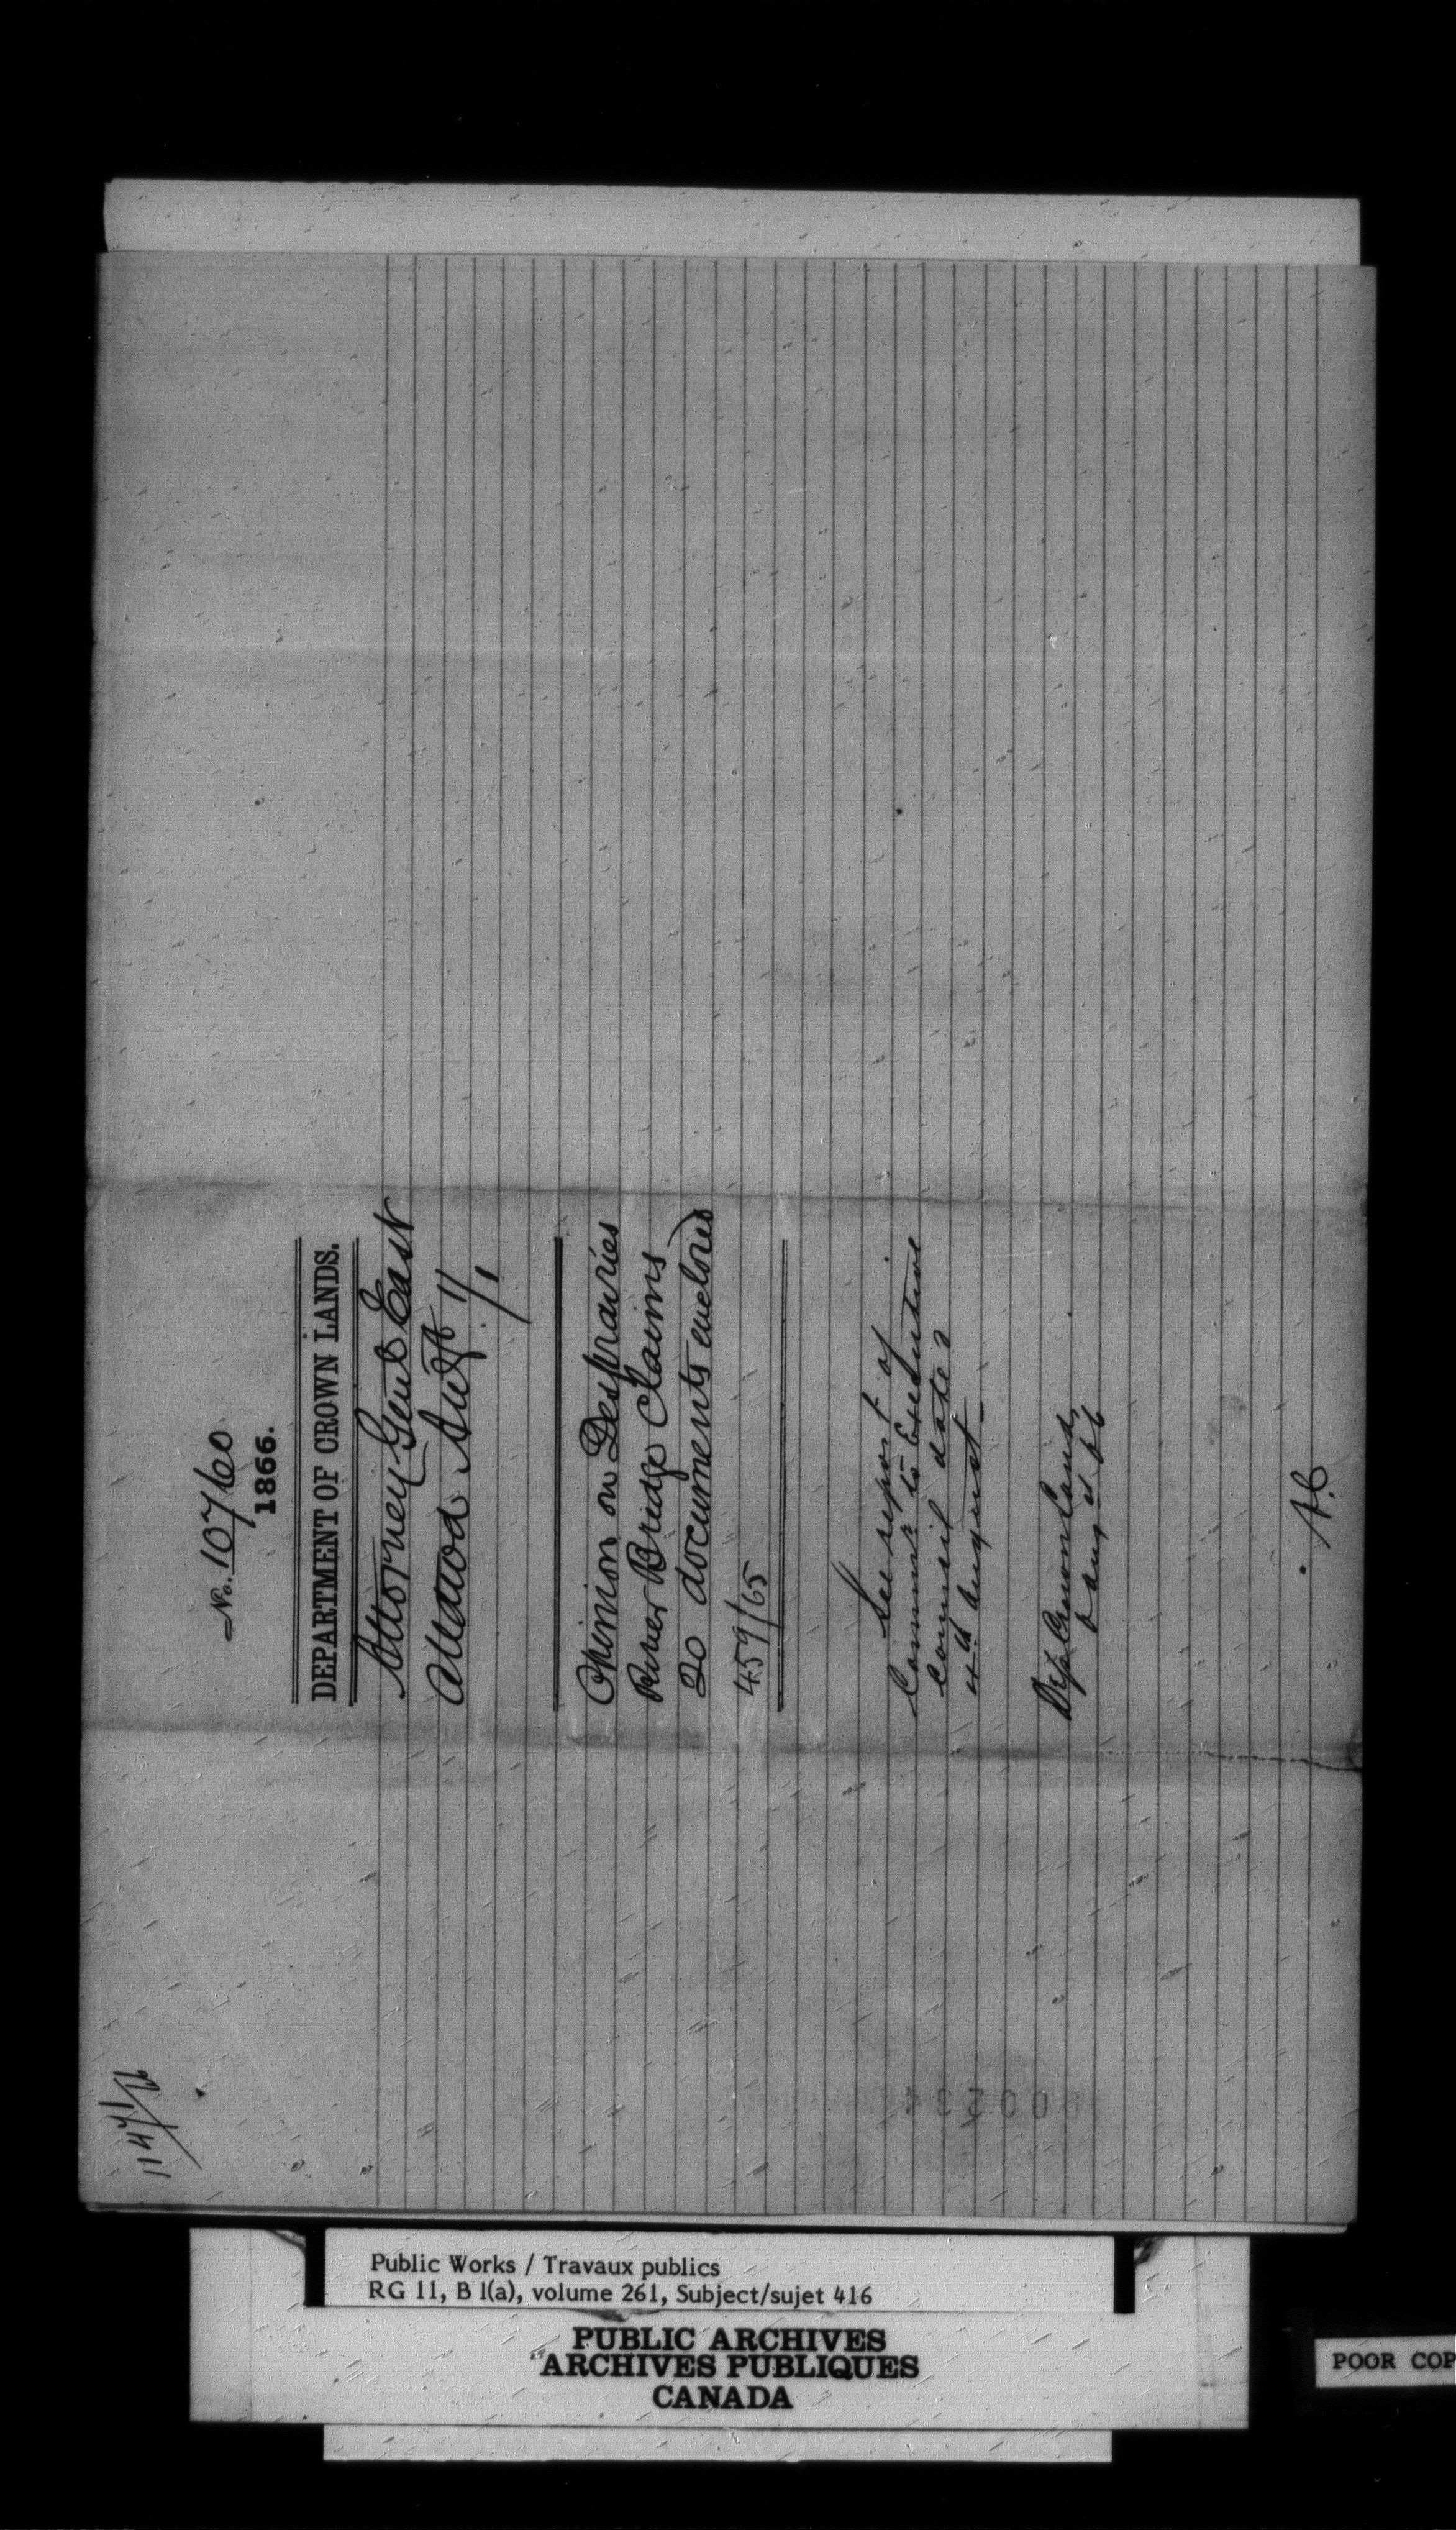 1147/66
No. 10760
1866.
DEPARTMENT OF CROWN LANDS.
Attorney Genl East
Ottawa
11/1
Opinion on Desprairies
River Bridge Claims
20 documents enclosed
459/65
See report of
Commr. to Executive
Council dated
4th August
Dept Crown Lands
6 Aug 66
000234
Public Works / Travaux publics
RG 11, B 1(a), volume 261, Subject/sujet 416
PUBLIC ARCHIVES
ARCHIVES PUBLIQUES
CANADA
POOR COP